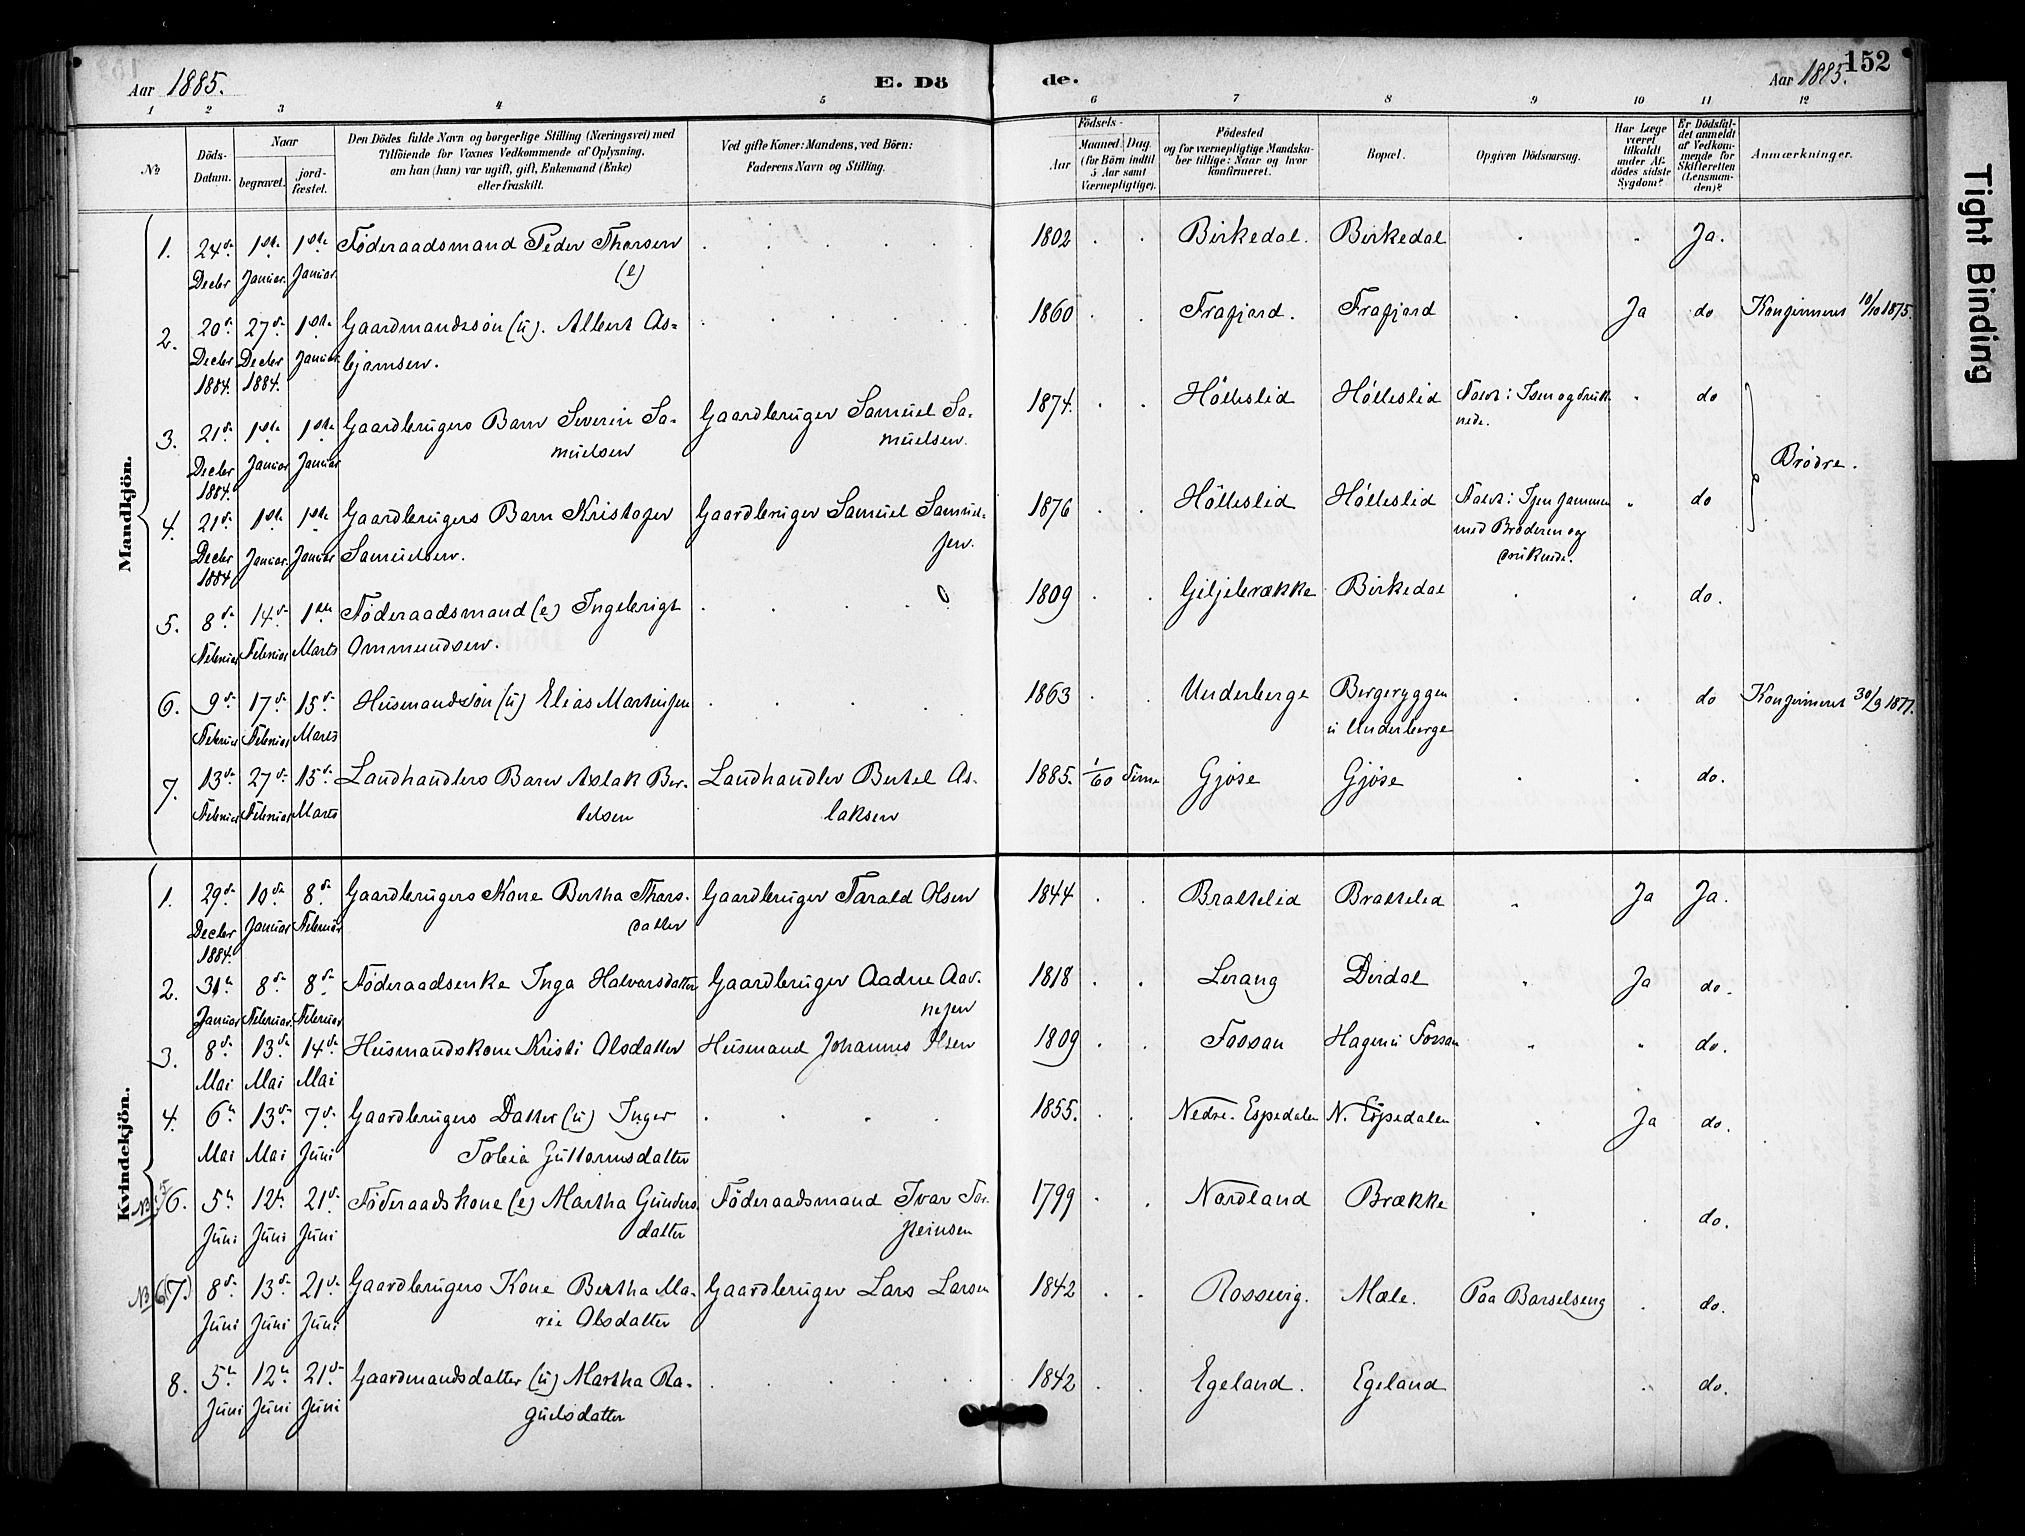 Aar 1885.
E. Dö
de.
Aar 1885.
152
1 2 3 4 5 6 7 8 9 10 11 12
№
Döds-Datum.
Naar
begravet.
jordfæstet.
Den Dödes fulde Navn og borgerlige Stilling (Næringsvei) med
Tilföiende for Voxnes Vedkommende af Oplysning,
om han (hun) var ugift, gift, Enkemand (Enke)
eller fraskilt.
Ved gifte Koner: Mandens, ved Börn:
Faderens Navn og Stilling.
Födsels-
Aar
Maaned. Dag
(for Börn indtil
5 Aar samt
Værnepligtige).
Födested
og for værnepligtige Mandska-
ber tillige: Naar og hvor
konfirmeret.
Bopæl.
Opgiven Dödsaarsag.
Har Læge
været
tilkaldt
under Af-
dødes sidste
Sygdom?
Er Dödsfal-
det anmeldt
af Vedkom-
mende for
Skifteretten
(Lensman-
den)?
Anmærkninger.
Mandkjön.
1. 24de 1ste 1ste Föderaadsmand Peder Thorsen 1802 Birkedal. Birkedal Ja.
Decbr Januar. Januar. (e)
2. 20de 27de 1ste Gaardmandssön (u). Albert As- 1860 Frafjord. Frafjord Ja do Konfirmeret 10/10 1875.
Decbr Decbr Januar bjørnsen.
1884. 1884.
3. 21de 1ste 1ste Gaardbrugers Barn Severin Sa- Gaardbruger Samuel Sa- 1874. Hölleslid Hölleslid Faldt i Isen og druk- do
Decbr Januar Januar muelsen muelsen. nede.
1884.
Brödre.
4. 21de 1ste 1ste Gaardbrugers Barn Kristofer Gaardbruger Samuel Samuel- 1876 Hölleslid Hölleslid Faldt i Isen sammen do
Decbr Januar. Januar Samuelsen. sen. med Broderen og
1884 druknede.
5. 8de 14de 1ste Föderaadsmand (e) Ingebrigt 1809 Giljebrække Birkedal do.
Februar Februar Marts Ommundsen.
6. 9de 17de 15de Husmandssön (u) Elias Martinsen 1863 Underberge Bergeryggen do Konfirmeret 30/9 1877.
Februar Februar Marts u Underberge
7. 13de 27de 15de Landhandlers Barn Aslak Ber- Landhandler Bertel As- 1885. 1/60 Time Gjöse Gjöse do.
Februar Februar Marts telsen laksen
Kvindekjön.
1. 29de 10de 8de Gaardbrugers Kone Bertha Thors- Gaardbruger Tarald Olsen 1844 Brattelid Brattelid Ja Ja.
Decbr Januar Februar datter
1884.
2. 31te 8de 8de Föderaadsenke Inga Halvorsdatter Gaardbruger Aadne Aad- 1818 Lerang Dirdal Ja do.
Januar Februar. Februar nesen
3. 8de 13de 14de Husmandskone Kristi Olsdatter Husmand Johannes Olsen 1809 Fossan Hagen u Fossan do.
Mai Mai Mai
4. 6te 13de 7de Gaardbrugers Datter (u) Inger 1855. Nedre. Espedalen N. Espedalen Ja do.
Mai Mai Juni Tobia Guttormsdatter
NB 5 6. 5te 12te 21de Föderaadskone (e) Martha Gunders- Föderaadsmand Ivar Tor- 1799 Nordland Brække do.
Juni Juni Juni datter steinsen
NB 6 (7.) 8de 13de 21de Gaardbrugers Kone Bertha Ma- Gaardbruger Lars Larsen 1842 Rossevig. Mæle. Paa Barselseng do.
Juni Juni Juni rie Olsdatter
8. 5te 12te 21de Gaardmandsdatter (u) Martha Ra- 1842 Egeland. Egeland do.
Juni Juni Juni guelsdatter
Tight Binding